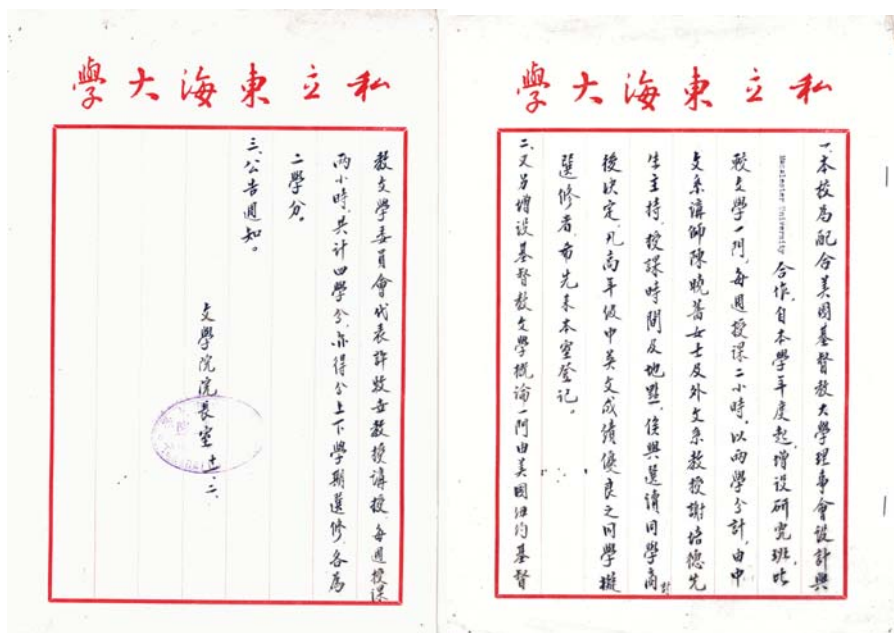 私立東海大學
一、本校為配合美國基督教大學理事會設計與
University 合作，自本學年度起，增設研究班比
較文學一門，每週授課二小時，以兩學分計，由中
文系講師陳曉薔女士及外文系教授謝培德先
生主持，授課時間及地點，俟與選讀同學商討
後決定，凡高年級中英文成績優良之同學擬
選修者，希先來本室登記。
二、又另增設基督教文學概論一門由美國紐約基督
私立東海大學
教文學委員會代表許牧世教授講授，每週授課
兩小時，共計四學分，亦得分上下學期選修，各為
二學分。
三、公告週知。
文學院院長室 十一、二